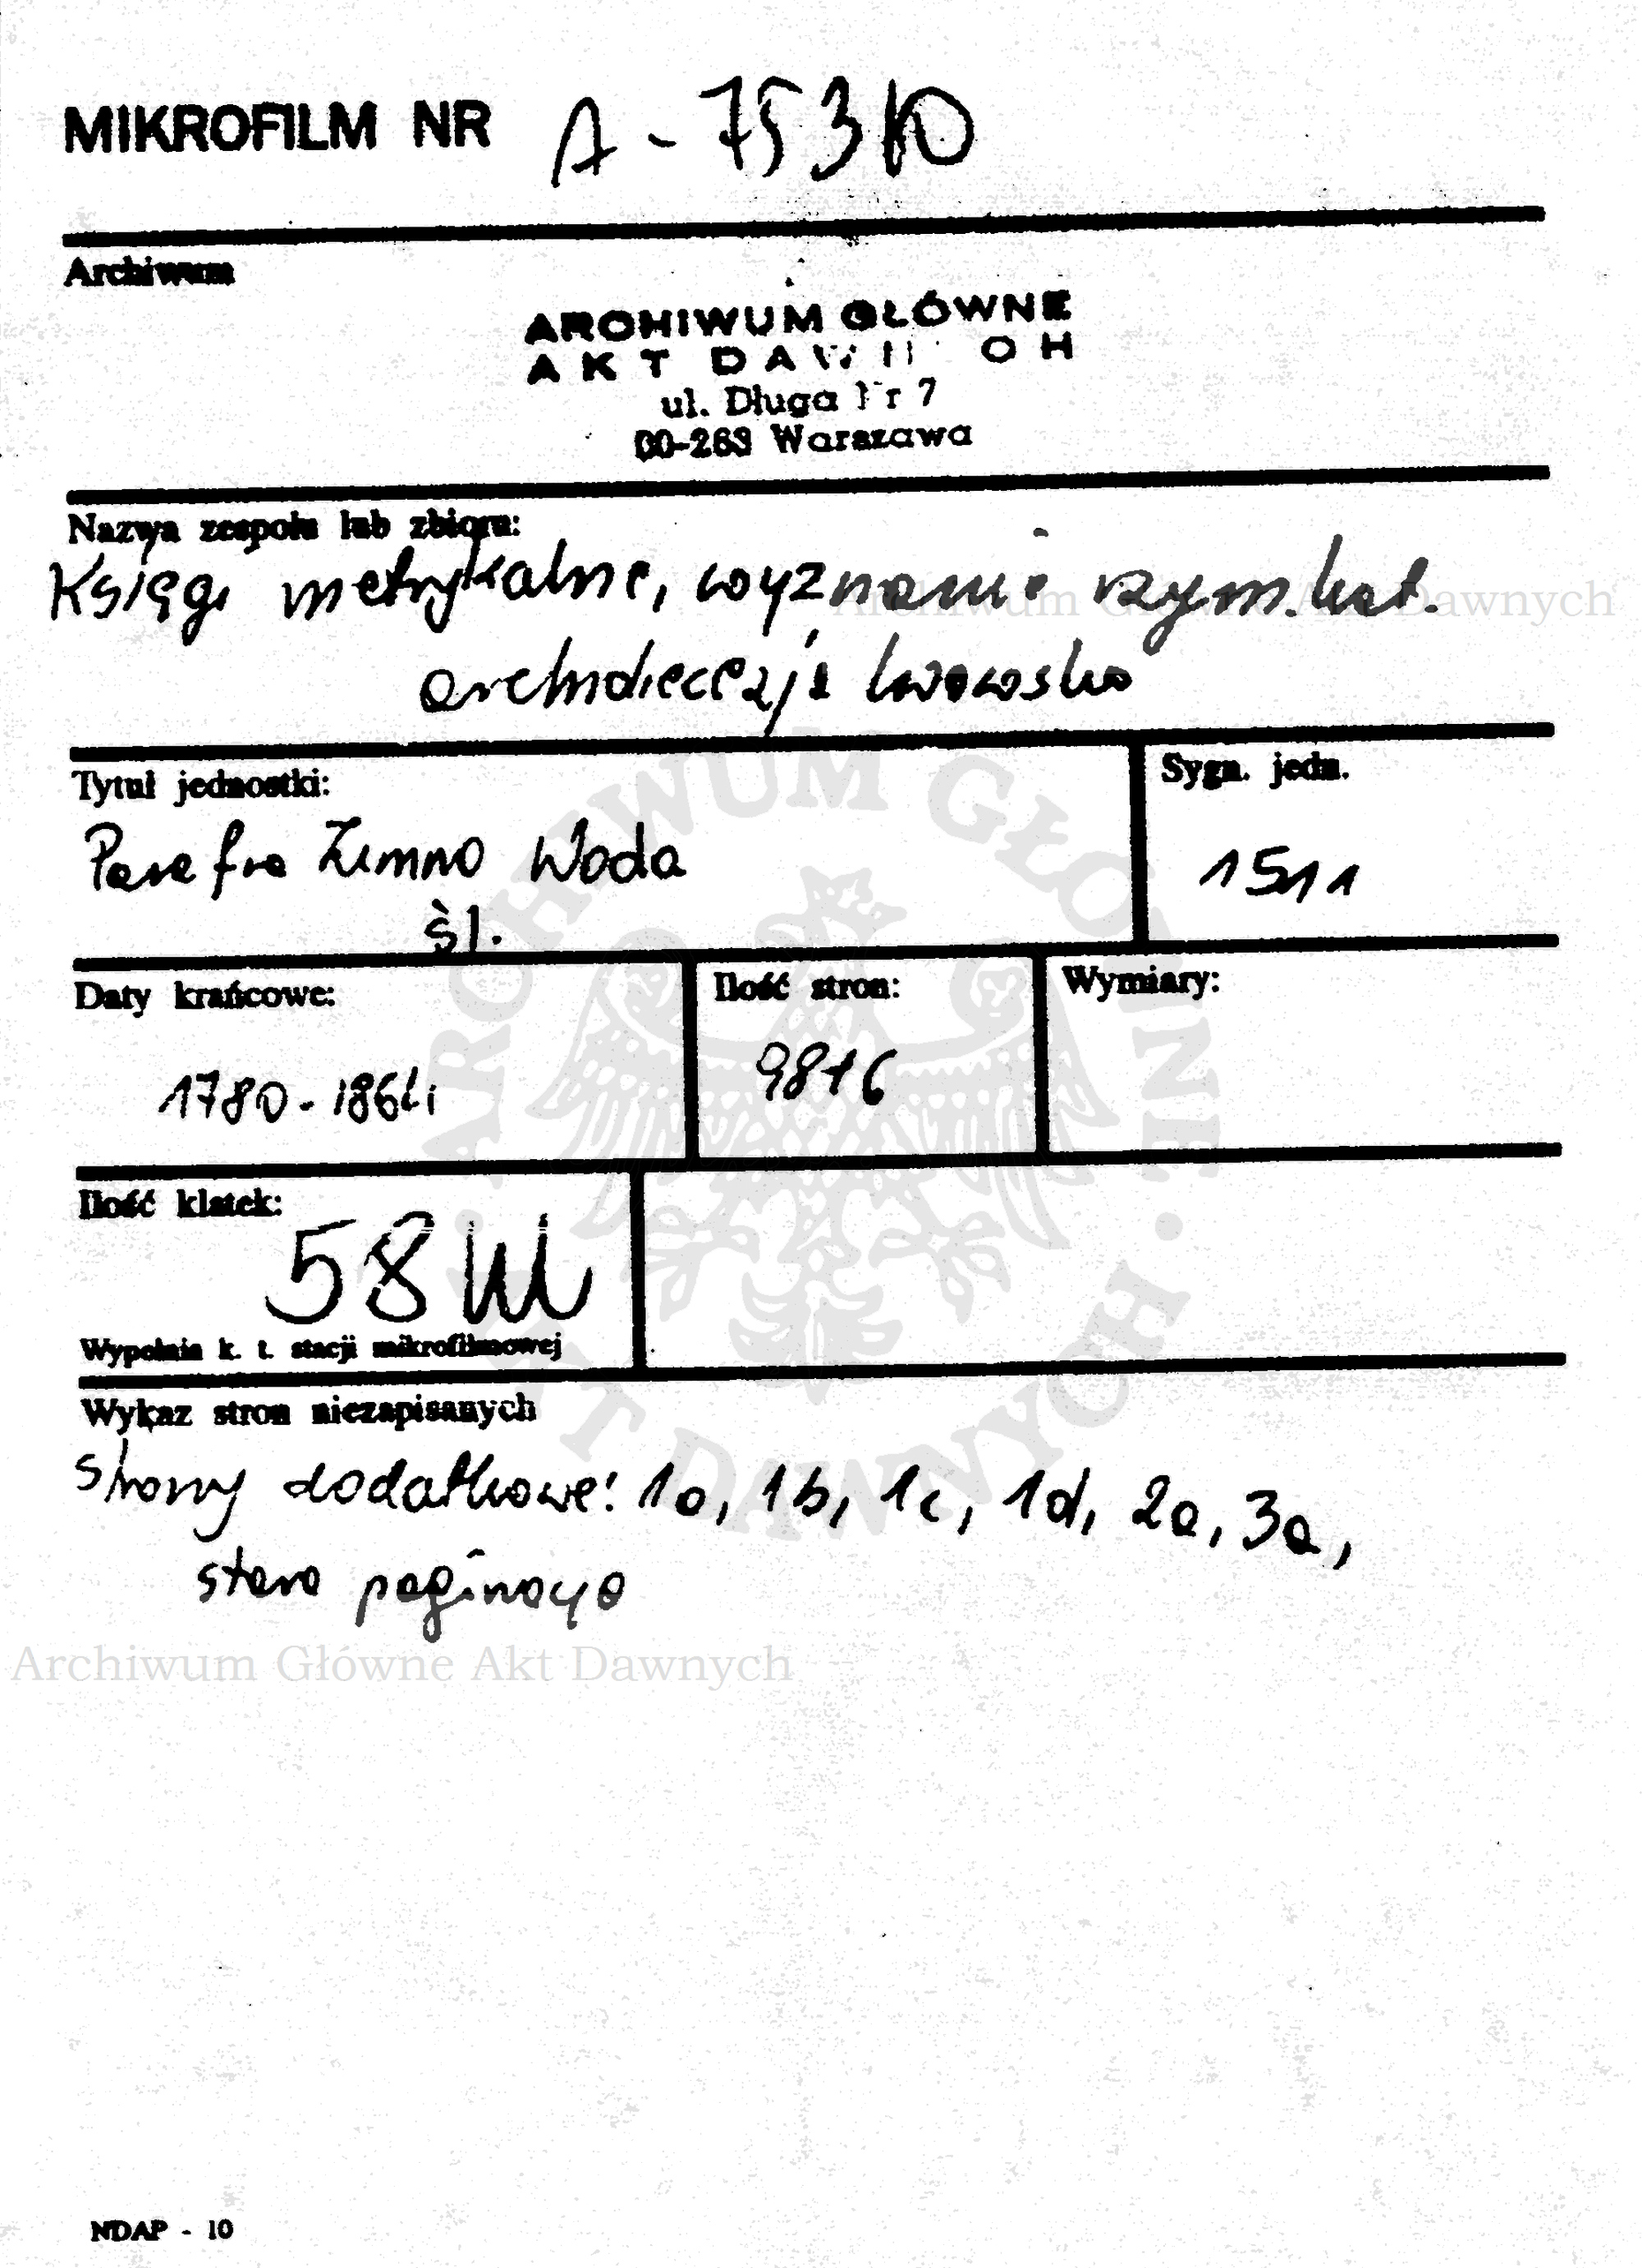 MIKROFILM NR A-75310
Archiwum
ARCHIWUM GŁÓWNE
AKT DAWNYCH
ul. Długa Nr 7
00-263 Warszawa
Nazwa zespołu lub zbioru:
Księgi metrykalne, wyznanie rzym. kat.
Archiwum Główne Akt Dawnych
archidiecezja lwowska
Tytuł jednostki:
Sygn. jedn.
Parafia Zimna Woda
1511
śl.
Daty krańcowe:
Ilość stron:
Wymiary:
1780-186
98+6
Ilość klatek:
58
Wypełnia k. t. stacji mikrofilmowej
Wykaz stron niezapisanych
strony dodatkowe: 1a, 1b, 1c, 1d, 2a, 3a,
stara paginacja
Archiwum Główne Akt Dawnych
ARCHIWUM GŁÓWNE AKT DAWNYCH
NDAP - 10